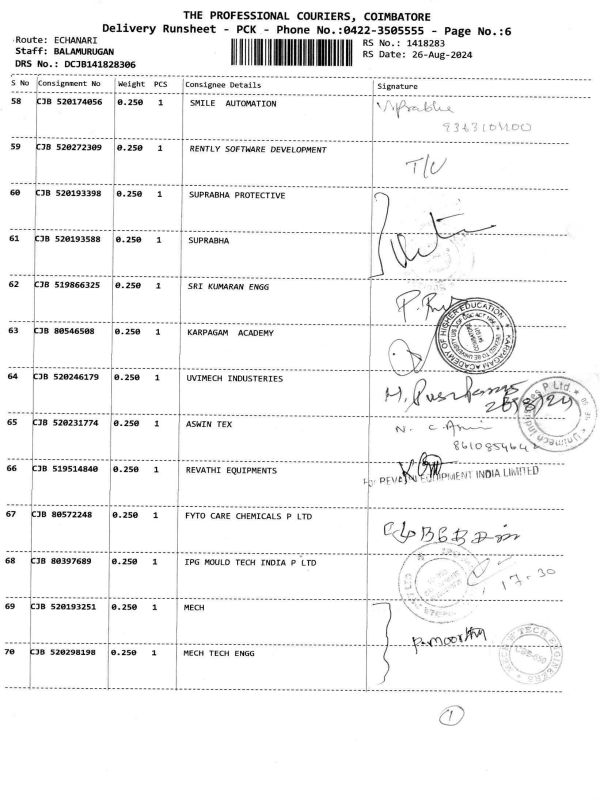 THE PROFESSIONAL COURIERS, COIMBATORE
Delivery Runsheet - PCK - Phone No.:0422-3505555 - Page No.:6
Route: ECHANARI
RS No.: 1418283
Staff: BALAMURUGAN
RS Date: 26-Aug-2024
DRS No.: DCJB141828306
S No Consignment No Weight PCS Consignee Details Signature
58 CJB 520174056 0.250 1 SMILE AUTOMATION
59 CJB 520272309 0.250 1 RENTLY SOFTWARE DEVELOPMENT
T/C
60 CJB 520193398 0.250 1 SUPRABHA PROTECTIVE
61 CJB 520193588 0.250 1 SUPRABHA
62 CJB 519866325 0.250 1 SRI KUMARAN ENGG
63 CJB 80546508 0.250 1 KARPAGAM ACADEMY
KARPAGAM ACADEMY OF HIGHER EDUCATION
64 CJB 520246179 0.250 1 UVIMECH INDUSTERIES
26/8/24
65 CJB 520231774 0.250 1 ASWIN TEX
66 CJB 519514840 0.250 1 REVATHI EQUIPMENTS
EQUIPMENT INDIA LIMITED
67 CJB 80572248 0.250 1 FYTO CARE CHEMICALS P LTD
68 CJB 80397689 0.250 1 IPG MOULD TECH INDIA P LTD
17-30
69 CJB 520193251 0.250 1 MECH
P.moorthy
70 CJB 520298198 0.250 1 MECH TECH ENGG
MECH TECH ENGINEERS
1